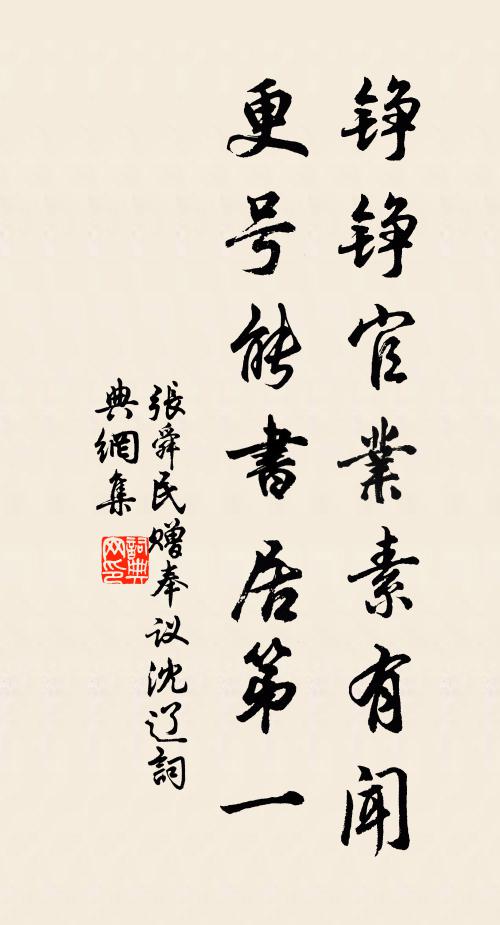 铮铮官業素有聞
更号能書居第一
張舜民赠奉议沈辽詞
典網集
詞典网印